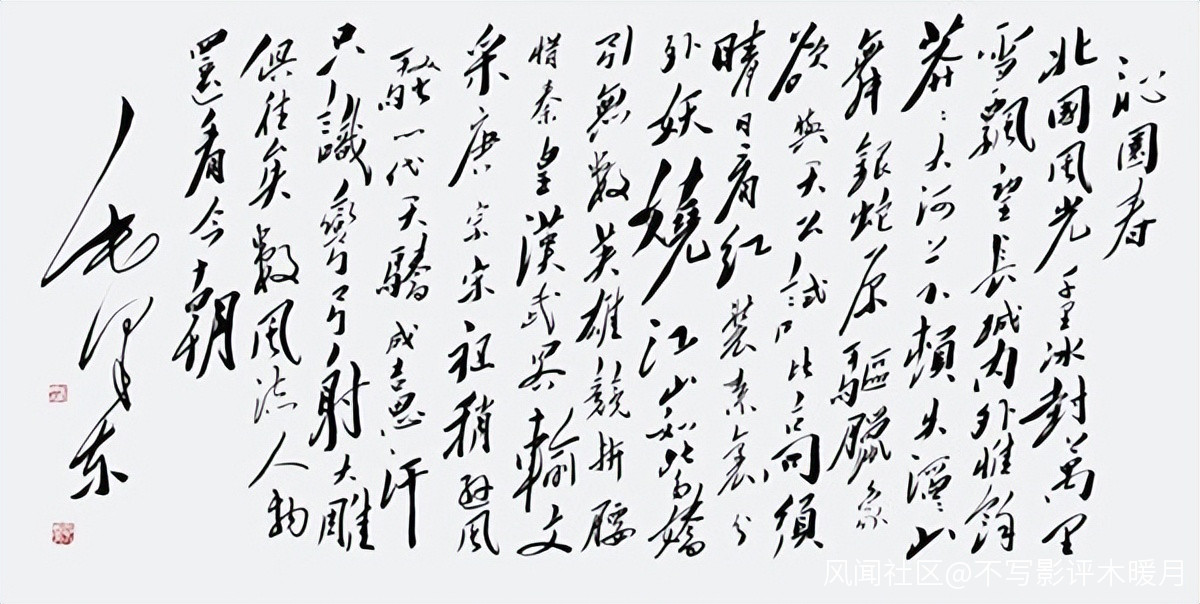 沁園春
北國風光千里冰封萬里
雪飄望長城內外惟餘
莽〻大河上下頓失滔〻山
舞銀蛇原驅臘象
欲與天公試比高須
晴日看紅裝素裹分
外妖嬈江山如此多嬌
引無數英雄競折腰
惜秦皇漢武略輸文
采唐宗宋祖稍遜風
騷一代天驕成吉思汗
只識彎弓射大雕
俱往矣數風流人物
還看今朝
毛澤東
风闻社区@不写影评木暖月